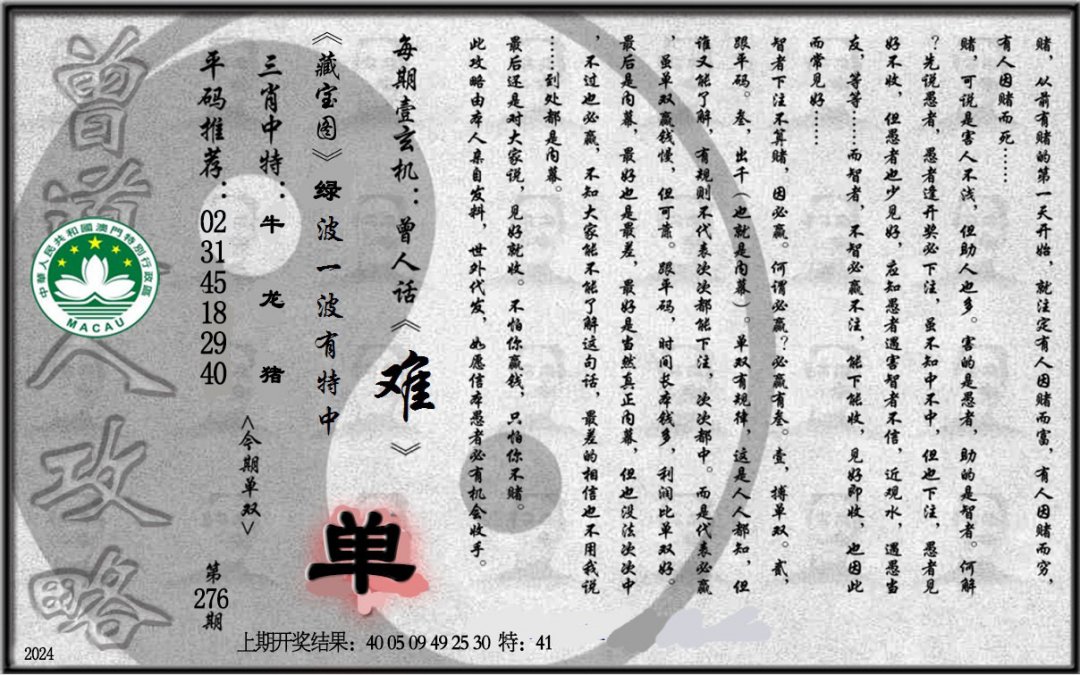 赌，从前有赌的第一天开始，就注定有人因赌而富，有人因赌而穷，
有人因赌而死……
赌，可说是害人不浅，但助人也多。害的是愚者，助的是智者。何解
？先说愚者，愚者逢开奖必下注，虽不知中不中，但也下注，愚者见
好不收，但愚者也少见好，应知愚者遇害智者不信，近观水，遇愚当
友，等等……而智者，不智必赢不注，能下能收，见好即收，也因此
而常见好……
智者下注不算赌，因必赢。何谓必赢？必赢有叁。壹，搏单双。贰，
跟平码。叁，出千（也就是内幕）。单双有规律，这是人人都知，但
谁又能了解，有规则不代表次次都能下注，次次都中。而是代表必赢
，虽单双赢钱慢，但可靠。跟平码，时间长本钱多，利润比单双好。
最后是内幕，最好也是最差，最好是当然真正内幕，但也没法次次中
，不过也必赢，不知大家能不能了解这句话，最差的相信也不用我说
……到处都是内幕。
最后还是对大家说，见好就收。不怕你赢钱，只怕你不赌。
此攻略由本人亲自发料，世外代发，如愿信本愚者必有机会收手。
每期壹玄机：曾人话《难》
《藏宝图》绿波一波有特中
三肖中特：牛 龙 猪
平码推荐：02 31 45 18 29 40
<今期单双>
单
第276期
曾道人攻略
中華人民共和國澳門特別行政區
MACAU
上期开奖结果：40 05 09 49 25 30 特：41
2024